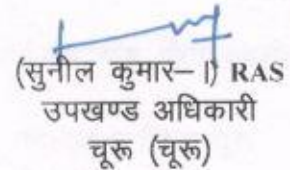 (सुनील कुमार–।) RAS
उपखण्ड अधिकारी
चूरू (चूरू)